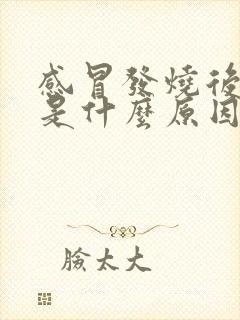 感冒發燒後
是什麼原因
臉太大